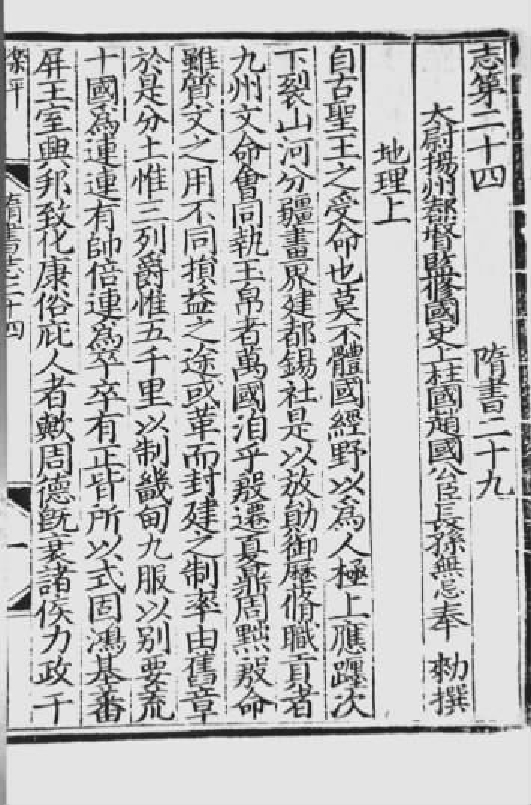 志第二十四 隋書二十九
太尉揚州都督監脩國史上柱國趙國公臣長孫無忌奉 勑撰
地理上
自古聖王之受命也莫不體國經野以爲人極上應躔次
下裂山河分疆畫界建都錫社是以放勛御歷脩職貢者
九州文命會同執玉帛者萬國洎乎殷遷夏鼎周黜殷命
雖質文之用不同損益之途或革而封建之制率由舊章
於是分土惟三列爵惟五千里以制畿甸九服以別要荒
十國爲連連有帥倍連爲卒卒有正皆所以式固鴻基蕃
屏王室興邦致化康俗庇人者歟周德旣衰諸侯力政干
隋書志二十四
一